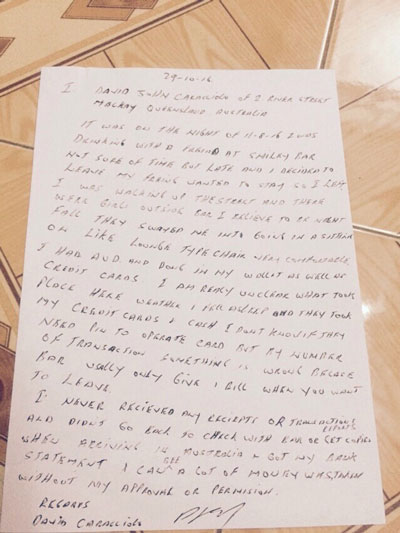 29-10-16
I DAVID JOHN CARACCIOLO OF 2 RIVER STREET
MACKAY QUEENSLAND AUSTRALIA
IT WAS ON THE NIGHT OF 11-8-16 I WAS
DRINKING WITH A FRIEND AT SMILEY BAR
NOT SURE OF TIME BUT LATE AND I DECIDED TO
LEAVE MY FRIEND WANTED TO STAY SO I LEFT
I WAS WALKING UP THE STREET AND THERE
WERE GIRLS OUTSIDE BAR I BELIEVE TO BE NIGHT
FALL THEY SWAYED ME INTO GOING IN & SITTING
ON LIKE LOUNGE TYPE CHAIR VERY COMFORTABLE
I HAD AUD. AND DONG IN MY WALLET AS WELL AS
CREDIT CARDS I AM REALY UNCLEAR WHAT TOOK
PLACE HERE WEATHER I FELL ASLEEP AND THEY TOOK
MY CREDIT CARDS & CASH I DONT KNOW IF THEY
NEED PIN TO OPERATE CARD BUT BY NUMBER
OF TRANSACTION SOMETHING IS WRONG BECAUSE
BAR USUALLY ONLY GIVE 1 BILL WHEN YOU WANT
TO LEAVE.
I NEVER RECIEVED ANY RECIEPTS OR TRANSACTIONS
AND DIDNT GO BACK TO CHECK WITH BAR OR GET COPIES
WHEN ARIVING IN AUSTRALIA & GOT MY BANK
STATEMENT I CAN SEE A LOT OF MONEY WAS TAKEN
WITHOUT MY APPROVAL OR PERMISION.
REGARDS
DAVID CARACCIOLO